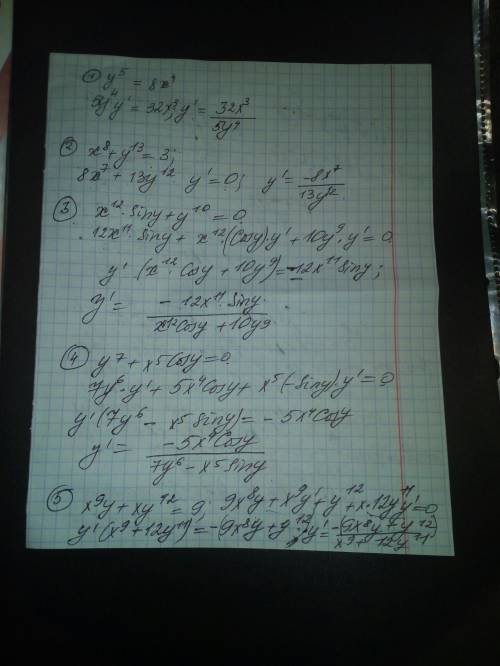 ① y⁵ = 8x⁴
5y⁴y' = 32x³; y' = 32x³/5y⁴
② x⁸ + y¹³ = 3;
8x⁷ + 13y¹² · y' = 0; y' = -8x⁷/13y¹²
③ x¹² · Siny + y¹⁰ = 0
12x¹¹ · Siny + x¹² · (Cosy) · y' + 10y⁹ · y' = 0
y' (x¹² · Cosy + 10y⁹) = -12x¹¹ Siny;
y' = - 12x¹¹ · Siny / x¹²Cosy + 10y⁹
④ y⁷ + x⁵Cosy = 0
7y⁶ · y' + 5x⁴Cosy + x⁵(-Siny) y' = 0
y' (7y⁶ - x⁵Siny) = - 5x⁴Cosy
y' = -5x⁴Cosy / 7y⁶ - x⁵Siny
⑤ x⁹y + xy¹² = 9; 9x⁸y + x⁹y' + y¹² + x · 12y¹¹y' = 0
y' (x⁹ + 12y¹¹) = -9x⁸y + y¹²; y' = -9x⁸y + y¹² / x⁹ + 12y¹¹